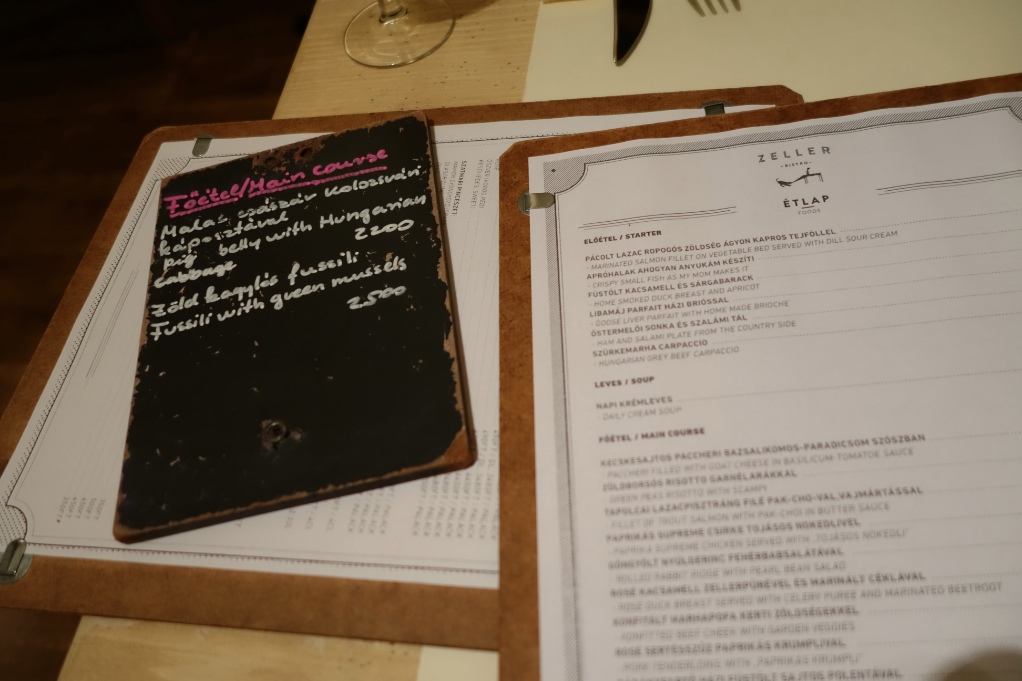 Főétel/Main course
Malac császár Kolozsvári
káposztával
pig belly with Hungarian
cabbage 2200
zöld kagylós fussili
Fussili with green mussels
2500
ZELLER
- BISTRO -
ÉTLAP
FOODS
ELŐÉTEL / STARTER
PÁCOLT LAZAC ROPOGÓS ZÖLDSÉG ÁGYON KAPROS TEJFÖLLEL
- MARINATED SALMON FILLET ON VEGETABLE BED SERVED WITH DILL SOUR CREAM
APRÓHALAK AHOGYAN ANYUKÁM KÉSZÍTI
- CRISPY SMALL FISH AS MY MOM MAKES IT
FÜSTÖLT KACSAMELL ÉS SÁRGABARACK
- HOME SMOKED DUCK BREAST AND APRICOT
LIBAMÁJ PARFAIT HÁZI BRIÓSSAL
- GOOSE LIVER PARFAIT WITH HOME MADE BRIOCHE
ŐSTERMELŐI SONKA ÉS SZALÁMI TÁL
- HAM AND SALAMI PLATE FROM THE COUNTRY SIDE
SZÜRKEMARHA CARPACCIO
- HUNGARIAN GREY BEEF CARPACCIO
LEVES / SOUP
NAPI KRÉMLEVES
- DAILY CREAM SOUP
FŐÉTEL / MAIN COURSE
KECSKESAJTOS PACCHERI BAZSALIKOMOS-PARADICSOM SZÓSZBAN
- PACCHERI FILLED WITH GOAT CHEESE IN BASILICUM-TOMATOE SAUCE
ZÖLDBORSÓS RISOTTO GARNÉLARÁKKAL
- GREEN PEAS RISOTTO WITH SCAMPI
TAPOLCAI LAZACPISZTRÁNG FILÉ PAK-CHO-VAL, VAJMÁRTÁSSAL
- FILLET OF TROUT SALMON WITH PAK-CHOI IN BUTTER SAUCE
PAPRIKÁS SUPREME CSIRKE TOJÁSOS NOKEDLIVEL
- PAPRIKA SUPREME CHICKEN SERVED WITH „TOJÁSOS NOKEDLI"
GÖNGYÖLT NYÚLGERINC FEHÉRBABSALÁTÁVAL
- ROLLED RABBIT RIDGE WITH PEARL BEAN SALAD
ROSÉ KACSAMELL ZELLERPÜRÉVEL ÉS MARINÁLT CÉKLÁVAL
- ROSÉ DUCK BREAST SERVED WITH CELERY PUREE AND MARINATED BEETROOT
KONFITÁLT MARHAPOFA KERTI ZÖLDSÉGEKKEL
- KONFITTED BEEF CHEEK WITH GARDEN VEGGIES
ROSÉ SERTÉSSZŰZ PAPRIKÁS KRUMPLIVAL
- PORK TENDERLONG WITH „PAPRIKÁS KRUMPLI"
HÁZI FÜSTÖLT SAJTOS POLENTÁVAL